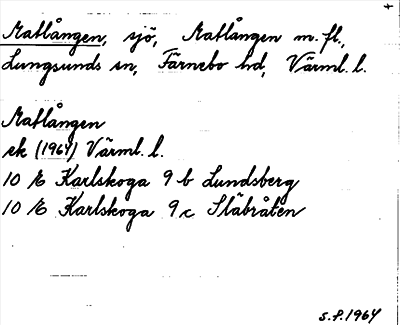 Matlången, sjö, Matlången m.fl.,
Lungsunds sn, Färnebo hd, Värml. l.
Matlången
ek (1964) Värml. l.
10 E Karlskoga 9 b Lundsberg
10 E Karlskoga 9 c Stäbråten
S.P. 1964